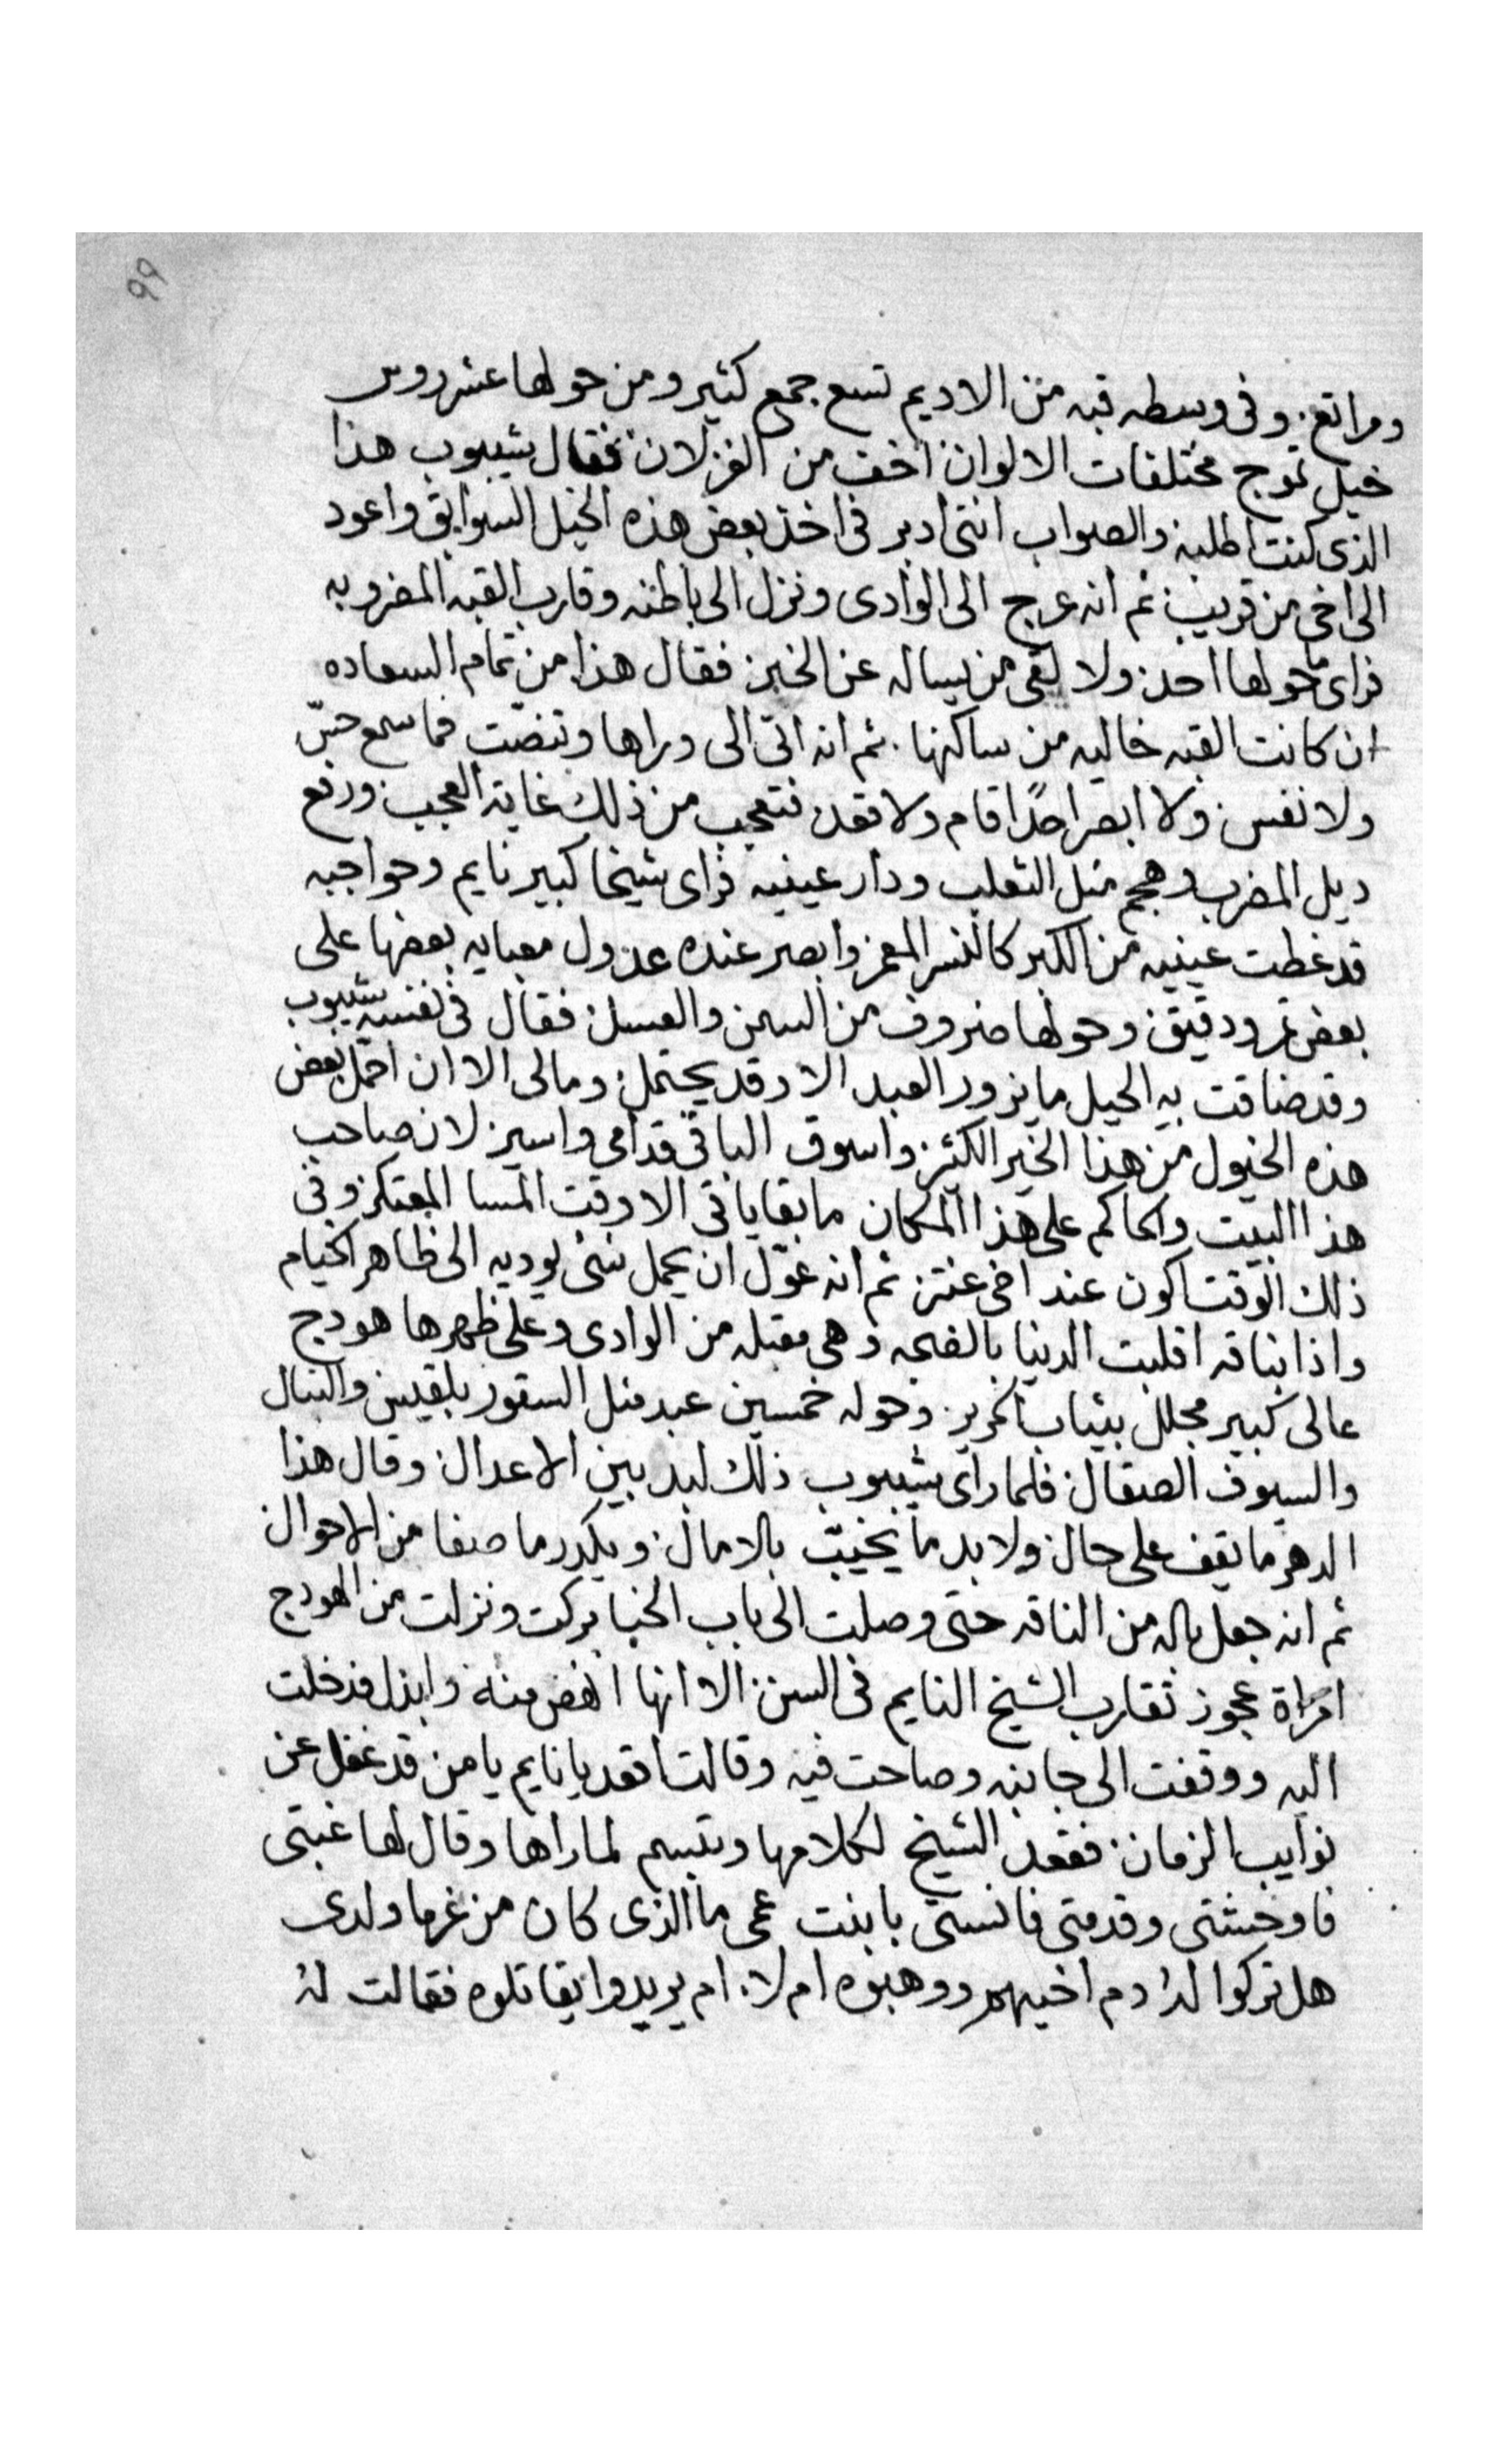 ٩٩
ومراتع. وفى وسطه قبه من الاديم تسع جمع كثير ومن حولها عشر روس
خيل تموج مختلفات الالوان اخف من الغزلان فقال شيبوب هذا
الذى كنت اطلبه والصواب اننى ادبر فى اخذ بعض هذه الخيل السوابق واعود
الى اخى من قريب ثم انه عرج الى الوادى ونزل الى باطنه وقارب القبه المضروبه
فراى ما حولها احد ولا لقى من يساله عن الخبر فقال هذا من تمام السعاده
ان كانت القبه خاليه من ساكنها. ثم انه اتى الى وراها وتنصّت فما سمع حسّ
ولا نفس ولا ابصر احدًا قام ولا قعد فتعجب من ذلك غاية العجب ورفع
ديل المضرب وهجم مثل الثعلب ودار عينيه فراى شيخا كبير نايم وحواجبه
قد غطت عينيه من الكبر كالنسر المعمر وابصر عنده عدول معبايه بعضها على
بعض تمر ودقيق وحولها ضروف من السمن والعسل فقال فى نفسه شيبوب
وقد ضاقت به الحيل ما يزور العبد الا وقد يحتمل ومالى الا ان احمّل بعض
هذه الخيول من هذا الخير الكثير واسوق الباقى قدامى واسير لان صاحب
هذا البيت والحاكم على هذا المكان ما بقا ياتى الا وقت المسا المعتكر وفى
ذلك الوقت اكون عند اخى عنتر ثم انه عوّل ان يحمل شى يوديه الى ظاهر الخيام
واذا بناقه اقلبت الدنيا بالضجه وهى مقبله من الوادى وعلى ظهرها هودج
عالى كبير مجلل بثياب الحرير وحوله خمسين عبد مثل السقور بلقيس والنبال
والسيوف الصقال فلما راى شيبوب ذلك لبد بين الاعدال وقال هذا
الدهر ما يقف على حال ولا بد ما يخيّب بالامال ويكدر ما صفا من الاحوال
ثم انه جعل باله من الناقه حتى وصلت الى باب الخبا بركت ونزلت من الهودج
امراة عجوز تقارب الشيخ النايم فى السن الا انها انهض منه وابذل فدخلت
اليه ووقفت الى جانبه وصاحت فيه وقالت اقعد يا نايم يا من قد غفل عن
نوايب الزمان فقعد الشيخ لكلامها وتبسم لما راها وقال لها غبتى
فاوحشتى وقدمتى فانستى يا بنت عمى ما الذى كان من غرما ولدى
هل تركوا له دم اخيهم ووهبوه ام لا. ام يريدوا يقاتلوه فقالت له